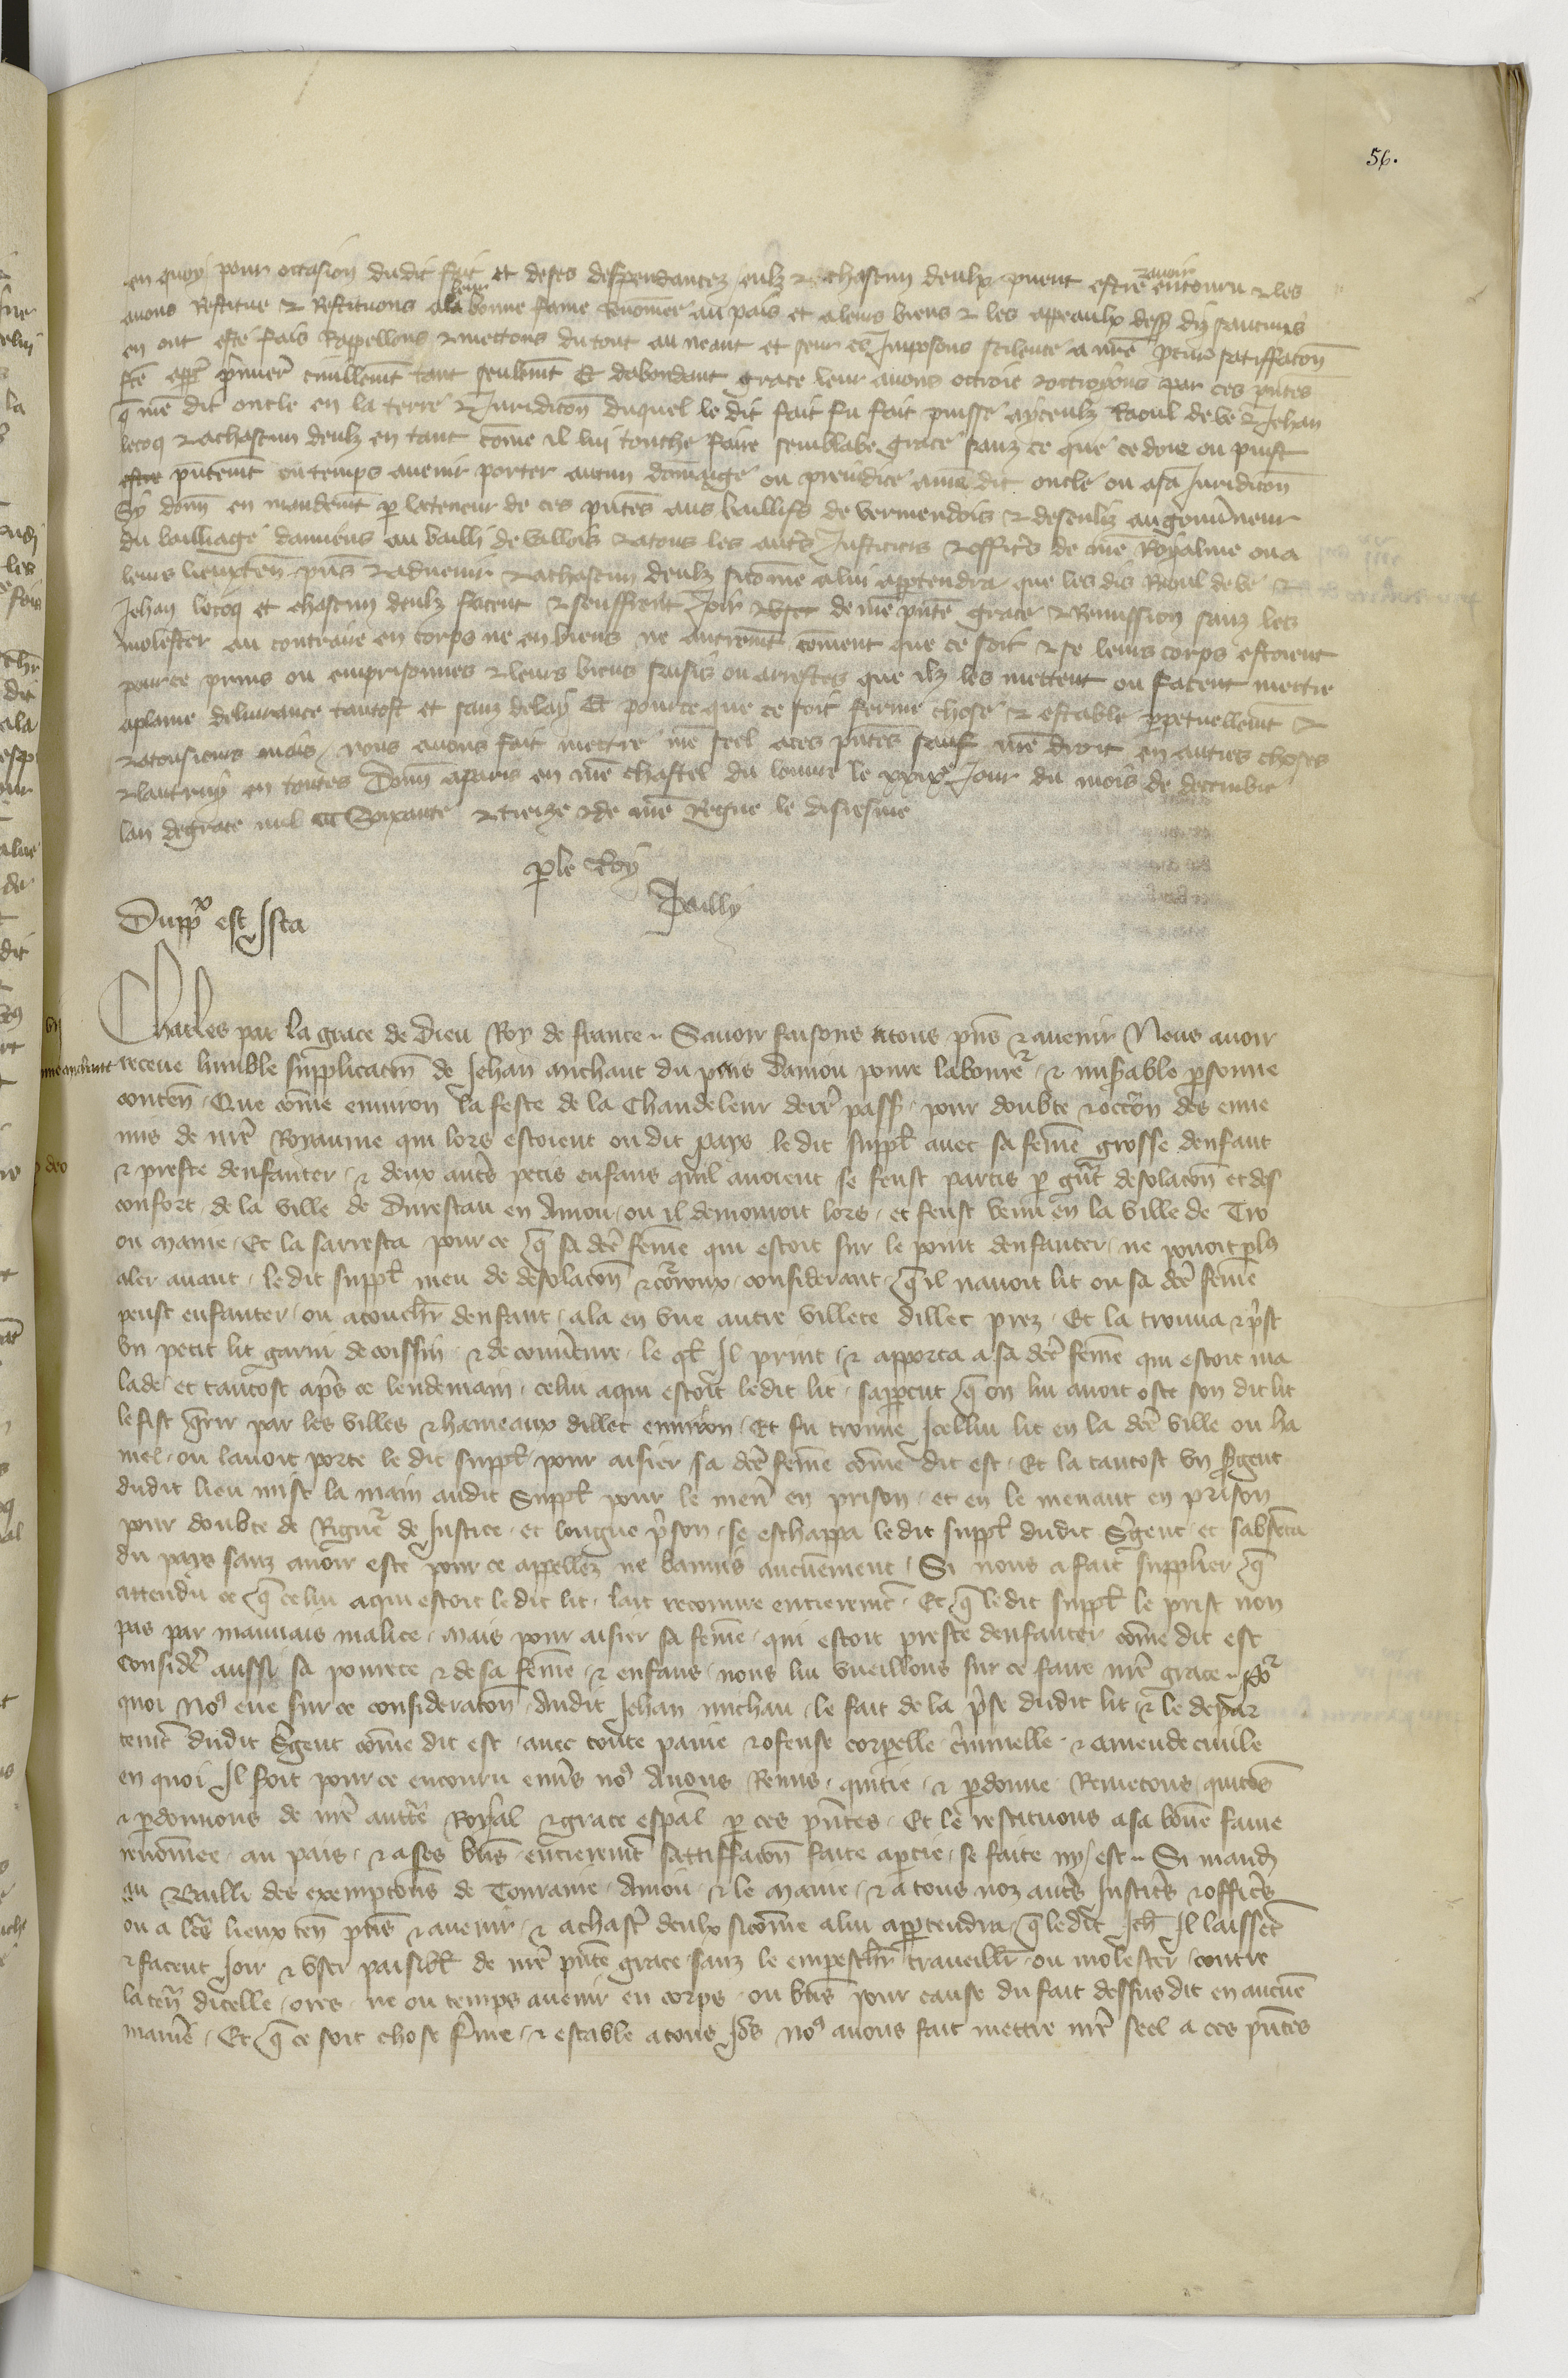 56.
en quoy pour occasion dudit fait et de ses despendances eulz & chascun deulx puent estre & avoir encouru & les
avons Restitue & Restituons a leur bonne fame Renōmee au pais et a leurs biens & les appeaulx dess dis s'aucuns
en ont este fais Rappellons & mettons du tout au neant et seur ce Imposons scilence a nr̄e pcur̄ satiffacōn
fc̄e a p̄miere civillemt̄ tant seulemt̄ Et dabondant grace leur avons octroie & octroyons par ces pn̄tes
q̄ nr̄e dit oncle en la terre & Juridicōn duquel le dit fait fu fait puisse a yceulz Raoul de ve & Jehan
lecoq & a chascun deulz en tant cōme il lui touche faire semblabe grace sanz ce que ce doie ou puist
estre pn̄temt̄ ou temps avenir porter aucun dōmaige ou preiudice a nr̄e dit oncle ou a sa Juridicōn
Sy donn̄ en mandemt̄ p̱ la teneur de ces pn̄tes aus baillifs de vermendois & de senliz au gouv̄neur
du bailliage damiens au bailli de Vallois & a tous les autr̄s Justiciers & offic̄rs de nr̄e Royalme ou a
leurs lieuxten̄ pn̄s & advenir & a chascun deulz si cōme a lui app̱tendra que les dis Raoul de ve &
Jehan lecoq et chascun deulz facent & seuffrent Joir & user de nr̄e pn̄te grace & Remission sanz les
molester au contraire en corps ne en biens ne autremt̄ cōment que ce soit & se leurs corps estoient
pour ce prins ou emprisonnes & leurs biens saisis ou arrestes que ilz les mettent ou facent mettre
a plaine delivrance tantost et sanz delay Et pour ce que ce soit ferme chose & estable p̱petuellemt̄ &
& a tousiours mais nous avons fait mettre nr̄e seel a ces pn̄tes sauf nr̄e droit en autres choses
& lautruy en toutes Donn̄ a paris en nr̄e chastel du louvre le xxixe Jour du mois de decembre
lan de grace mil ccc Soixante & treize & de nr̄e Regne le disiesme
p̱ le Roy
Tailly
Dupp̱o est Ista
Charles par la grace de Dieu Roy de france Savoir faisons a tous pn̄s & avenir Nous avoir
receue humble supplicacōn de Jehan michaut du pais Daniou povre laboure͛ & mis̄able p̱sonne
conten̄ Que cōme environ la feste de la Chandeleur derr̄ pass̄ pour doubte & occ̄on des enne
mis de nr̄e Royaume qui lors estoient ou dit pays le dit suppl̄ avec sa fēme grosse denfant
& preste denfanter & deux autr̄s petis enfans quil avoient se feust partis p̱ grāt desolacōn et des
confort de la ville de Durestau en Aniou ou il demouroit lors et feust venu en la ville de Tro
ou maine Et la sarresta pour ce q̄ sa dc̄e fēme qui estoit sur le point denfanter ne povoit plus
aler avant le dit suppl̄ meu de desolacōn & courroux considerant q̄ il navoit lit ou sa dc̄e fēme
peust enfanter ou acouch̄r denfant ala en une autre villete dillec prez Et la trouva & p̄st
un petit lit garni de coissin & de couv̄ture le ql̄ Il print & apporta a sa dc̄e fēme qui estoit ma
lade et tantost ap̄s ce lendemain celui a qui estoit le dit lit sapp̱cut q̄ on lui avoit oste son dit lit
le fist q̄rir par les villes & hameaux dillec environ Et fu trouve Icellui lit en la dc̄e ville ou ha
mel ou lavoit porte le dit suppl̄ pour aisier sa dc̄e fēme cōme dit est Et la tantost un s̄gent
dudit lieu mist la main audit Suppl̄ pour le men̄ en prison et en le menant en prison
pour doubte de Rigue͛ de Justice et longue p̄son se eschappa le dit suppl̄ dudit S̄gent et sabsenta
du pays sanz avoir este pour ce appellez ne bannis aucunement Si nous a fait supplier q̄
attendu ce q̄ celui a qui estoit le dit lit lait recouvre entieremt̄ Et q̄ le dit suppl̄ le prist non
pas par mauvais malice mais pour aisier sa fēme qui estoit preste denfanter cōme dit est
considēr aussi sa povrete & de sa fēme & enfans nous lui vueillons sur ce faire nr̄e grace Po͛
quoi No9 eue sur ce consideracōn Audit Jehan michau le fait de la p̄se dudit lit & le depar
temt̄ dudit S̄gent cōme dit est avec toute paine & ofense corporelle c̄minelle & amende civile
en quoi Il soit pour ce encouru env̄s no9 Avons Remis quitie & p̱donne Remetons quitons
& p̱donnons de nr̄e autor̄te Royal & grace espāl p̱ ces pn̄tes Et le restituons a sa bōne fame
renōmee au pais & a ses biēs entieremt̄ sattiffacōn faite a p̱tie se faite ny est Si mand̄
au Bailli des exempcōns de Touraine Aniou & le maine & a tous noz autr̄s Justic̄rs & offic̄rs
ou a leurs̄ lieux ten̄ pn̄s & avenir & a chasc̄ deulx si cōme a lui app̱tendra q̄ le dit Jeh̄ Il laissēt
& facent Joir & user paisibl̄ de nr̄e pn̄te grace sanz le empesch̄r traveill̄r ou molester contre
la ten̄ dicelle ores ne ou temps avenir en corps ou biēs pour cause du fait dessus dit en aucūe
manie͛ Et q̄ ce soit chose f̄me & estable a tous Jo͛s No9 avons fait mettre nr̄e seel a ces pn̄tes